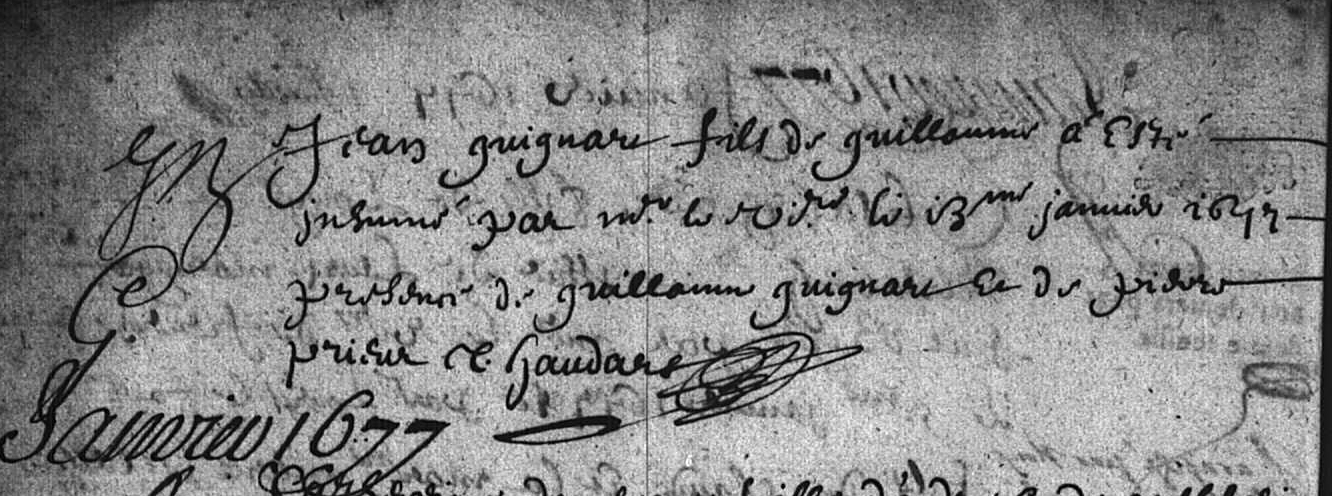 Jean guignart fils de guillaume a Esté
inhumé par mr le le 13me janvier 1677
presence de guillaume guignart Et de pierre
prieur C. Gaudart
Janvier 1677